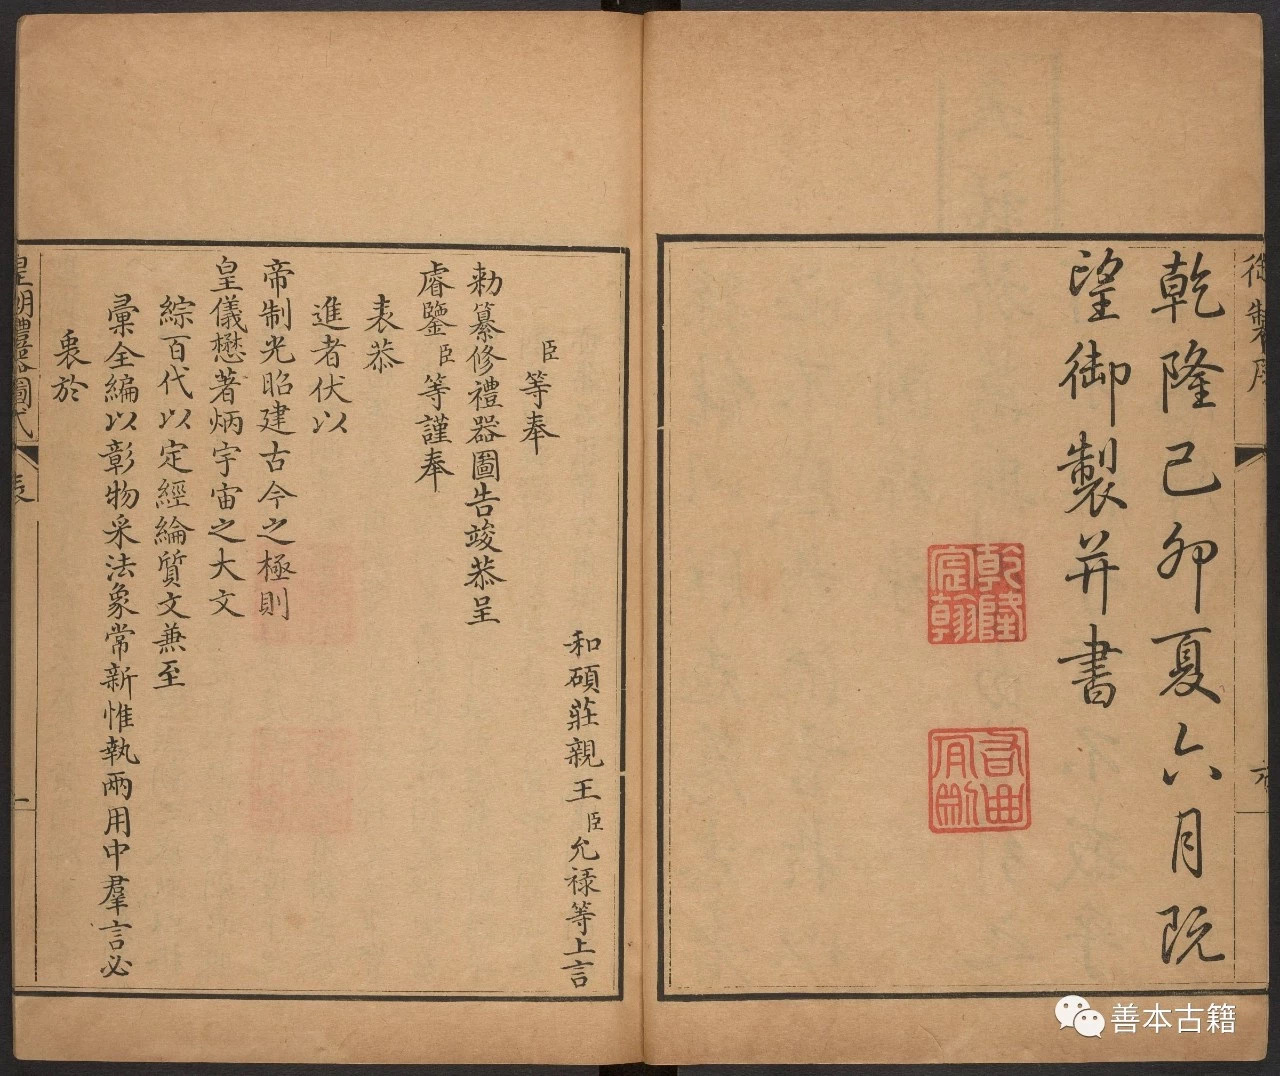 乾隆己卯夏六月既
望御製并書
乾隆
宸翰
和碩莊親王臣允祿等上言
臣等奉
勅纂修禮器圖告竣恭呈
睿鑒臣等謹奉
表恭
進者伏以
帝制光昭建古今之極則
皇儀懋著炳宇宙之大文
綜百代以定經綸質文兼至
彙全編以彰物采法象常新惟執兩用中羣言必
衷於
皇朝禮器圖式
表
一
善本古籍